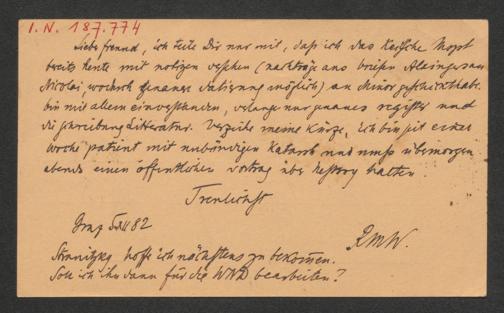 I. N. 187.774
Liebe freund, ich teile Dir nur mit, daß ich das Msspt
bereits heute mit notizen versehen (nachträge aus briefen Alxingers an
Nicolai, wodurch genaue datierung möglich) an geschickt habe.
bin mit allem einverstanden, verlange nur genaues register und
die schreibung Litteratur. Verzeihe meine Kürze, ich bin seit einer
woche patient mit Katarrh und muss übermorgen
abends einen öffentlichen vortrag über halten
Treulichst
Graz 82
RMW.
Stranitzky hoffe ich nächstens zu bekommen.
Soll ich ihn dann für die WND bearbeiten?